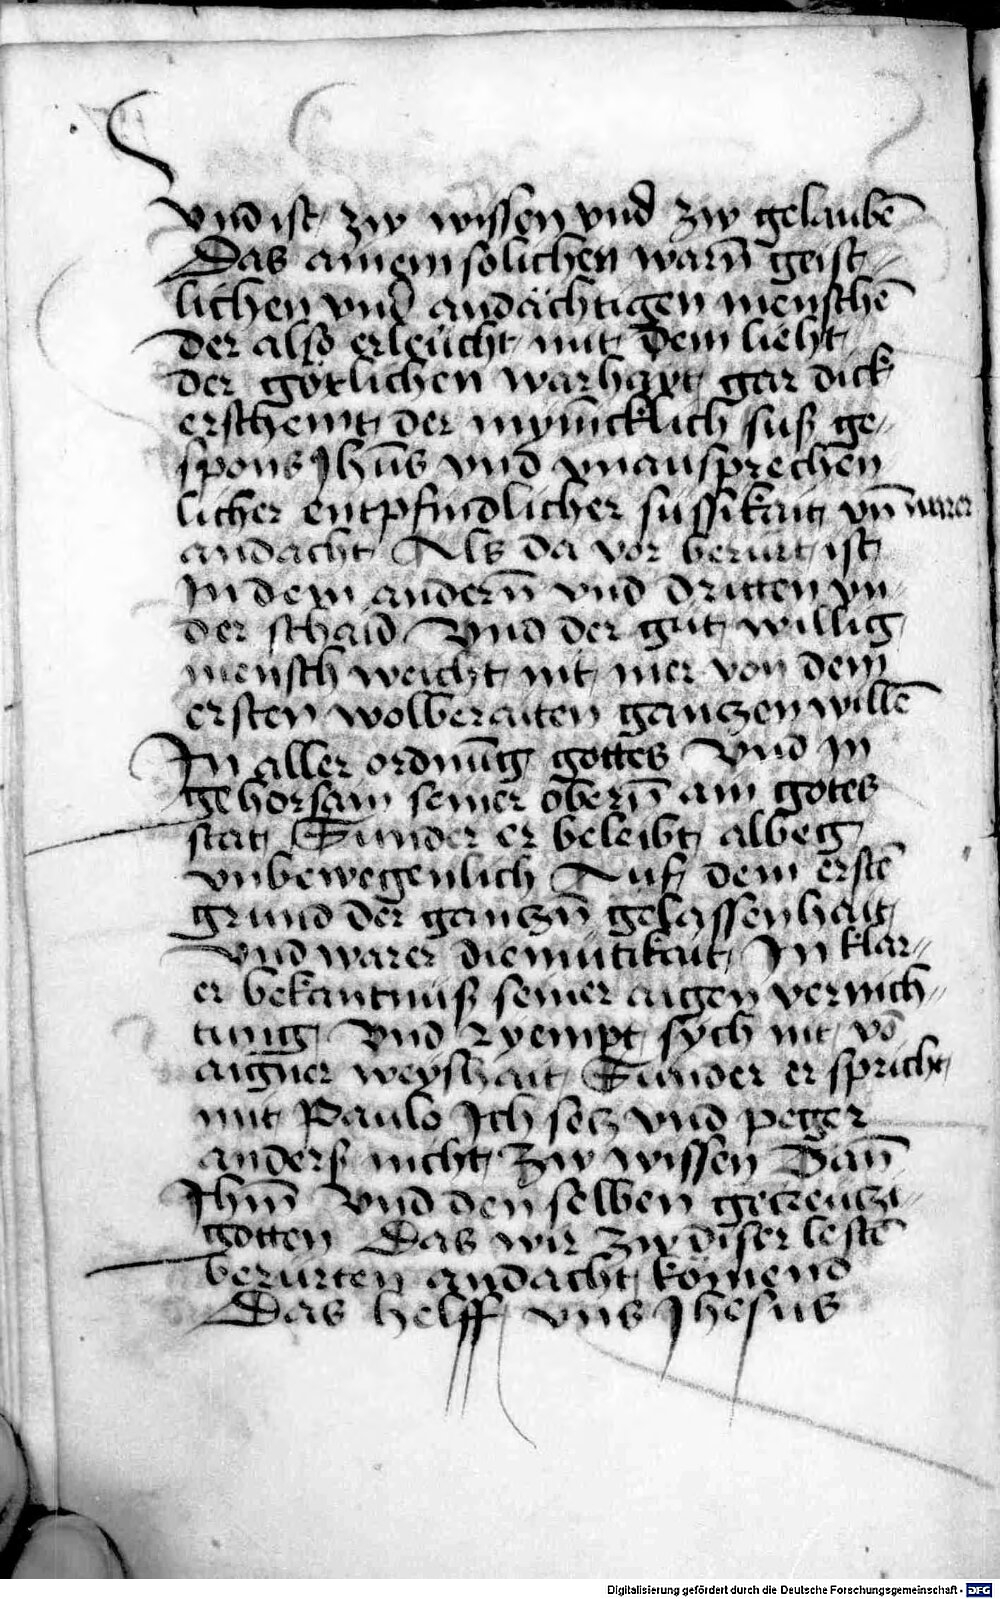 vnd ist zw wissen vnd zw gelaubē
Das ainem solichen warn̄ geist-
lichen vnd andächtigen menschē
der also erleücht mit dem lieht
der götlichen warhayt gar dick
erscheint der mynnicklich suß ge-
spons Jhūs vnd vnausprechen
licher entpfindlicher sussikait vn̄ warer
andacht Als da vor berürt ist
In dem andern̄ vnd dritten vn-
der schaid Vnd der gut willig
mensch weicht nit mer von dem
ersten wolberaiten gantzen willē
In aller ordnūg gottes Vnd in
gehorsam seiner obern̄ an gotes
stat Sunder er beleibt albeg
vnbewegenlich Auf dem erstē
grund der gantzn̄ gelassenhait
Vnd warer diemutikait In klar-
er bekantnuß seiner aigen vernich-
tung Vnd ryempt sych nit vō
aigner weyshait Sunder er spricht
mit Paulo Ich setz vnd peger
anders nicht zw wissen Dan̄
Jhm̄ Vnd den selben gekreutzi-
gotten Das wir zw diser lestē
berurten andacht kömend
Das helff vns Jhesus
Digitalisierung gefördert durch die Deutsche Forschungsgemeinschaft - DFG